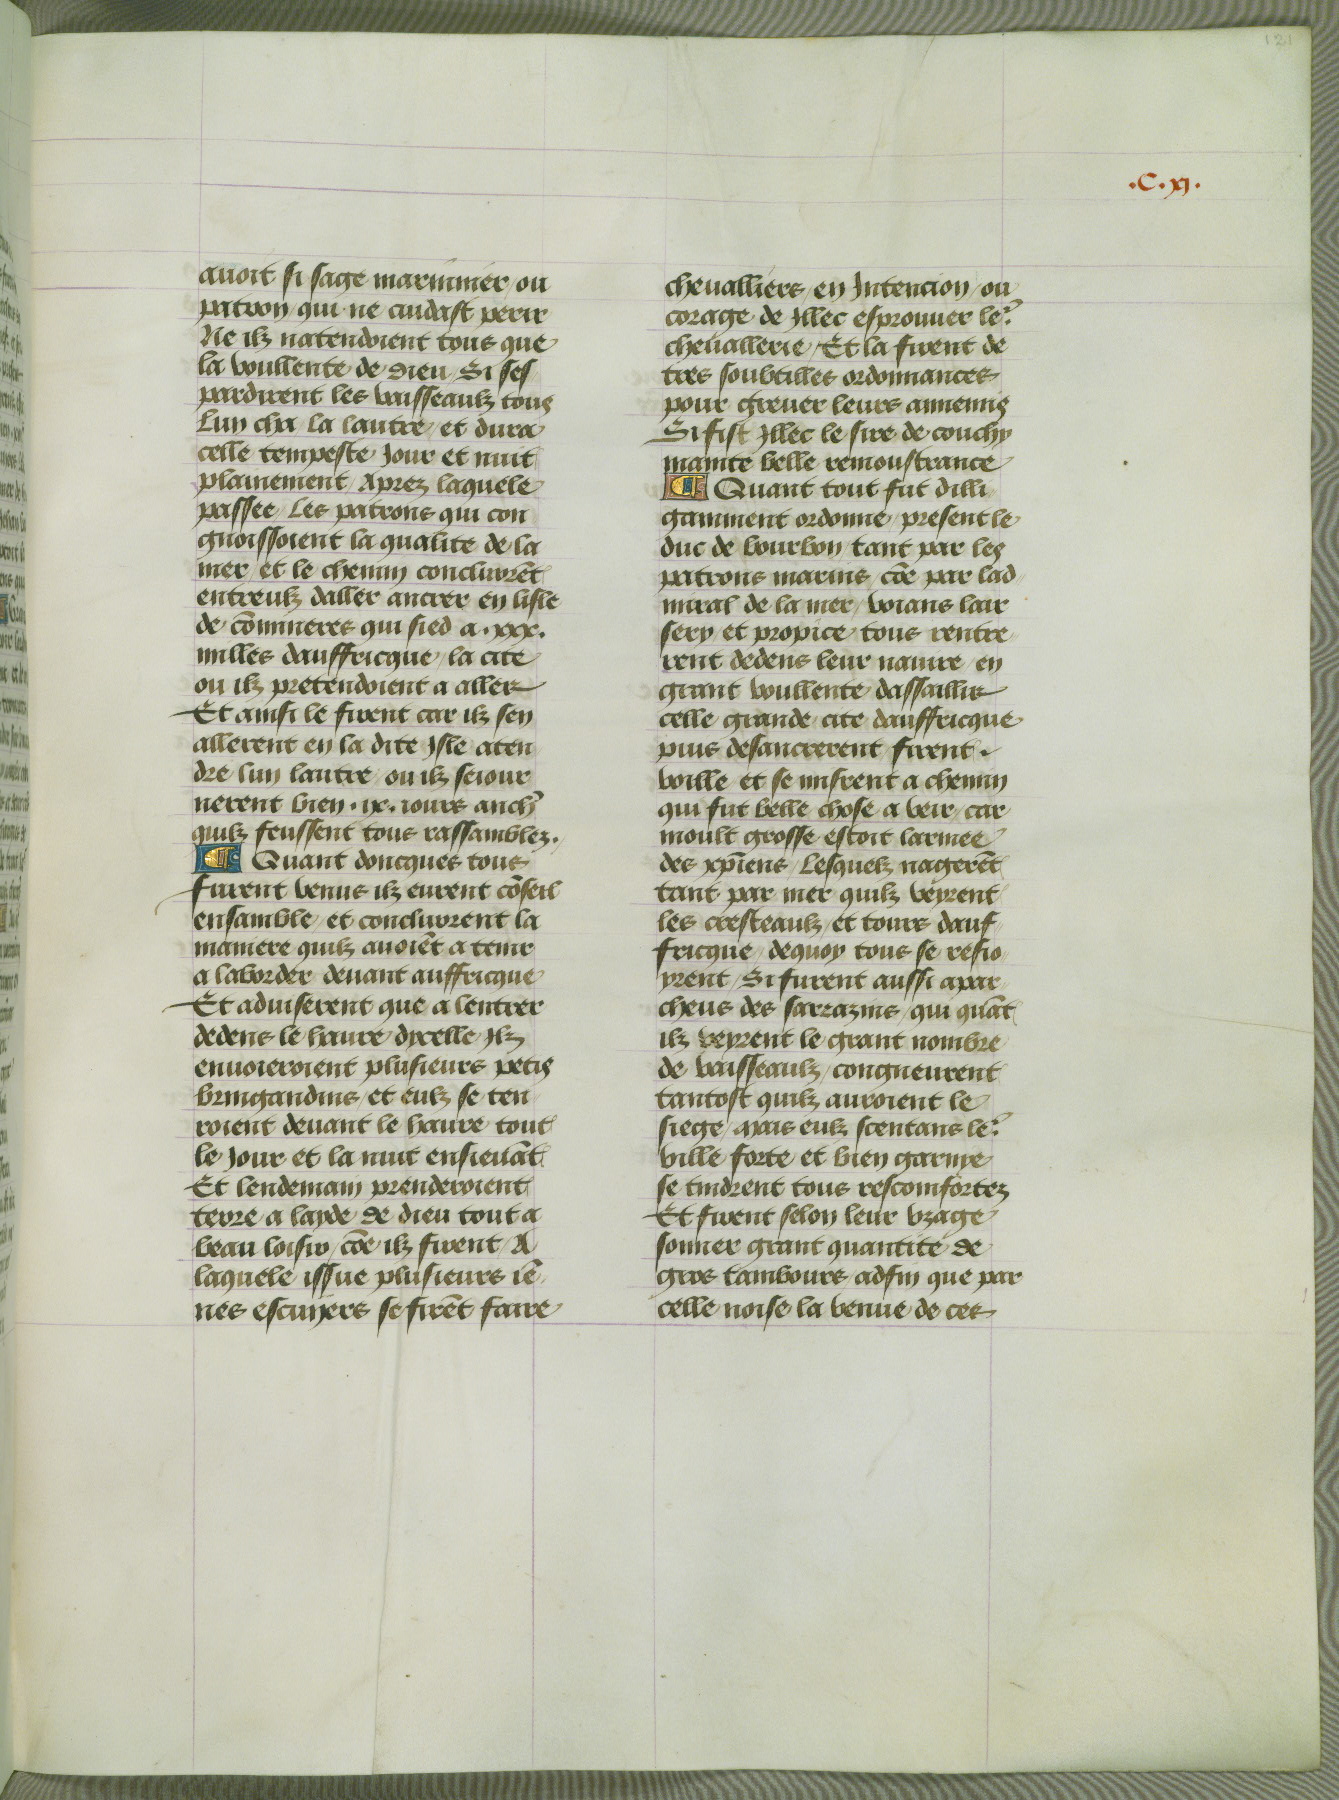 121
.C.xj.
auoit si sage marinnier ou
patron qui ne cuidast perir
Ne ilz natendoient tous que
la voullente de dieu Si ses
pardirent les vaisseaulz tous
Lun cha la lautre et dura
celle tempeste Jour et nuit
plainement Aprez laquele
passee Les patrons qui con
gnoissoient la qualite de la
mer et le chemin conclurẽt
entreulz daller ancrer en lisle
de cõmneres qui sied a .xxx.
milles dauffricque la cite
ou ilz pretendoient a aller
Et ainsi le firent car ilz sen
allerent en la dite Jsle aten
dre lun lautre ou ilz seiour
nerent bien .ix. iours anch̾
quilz feussent tous rassamblez.
Quant doncques tous
furent venus ilz eurent cõseil
ensamble et conclurent la
maniere quilz auoiẽt a tenir
a laborder deuant auffricque
Et aduiserent que a lentrer
dedens le haure dycelle Jlz
enuoieroient plusieurs petis
bringandins et eulz se ten
roient deuant le haure tout
le Jour et la nuit ensieuãt
Et lendemain prenderoient
terre a layde de dieu tout a
beau loisir cõe ilz firent A
laquele issue plusieurs iẽ
nes escuijers se firẽt faire
cheualliers en Jntencion ou
corage de Jllec esprouuer le᷑
cheuallerie Et la firent de
tres soubtilles ordonnances
pour greuer leurs annemis
Si fist Jllec le sire de couchy
mainte belle remoustrance
Quant tout fut dilli
gamment ordonne present le
duc de bourbon tant par les
patrons marins cõe par lad
miral de la mer voians lair
sery et propice tous rentre
rent dedens leur nauire en
grant voullente dassaillir
celle grande cite dauffricque
puis desancrerent firent .
voille et se misrent a chemin
qui fut belle chose a veir car
moult grosse estoit larmee
des xp̃iens Lesquelz nagerẽt
tant par mer quilz veyrent
les cresteaulz et tours dauf
fricque dequoy tous se resio
yrent Si furent aussi apar
cheus des sarrazins qui quãt
ilz veyrent le grant nombre
de vaisseaulz congneurent
tantost quilz auroient le
siege Mais eulz scentans le᷑
ville forte et bien garnye
se tindrent tous rescomfortez
Et firent selon leur vzage
sonner grant quantite de
gros tambours adfin que par
celle noise la venue de ces